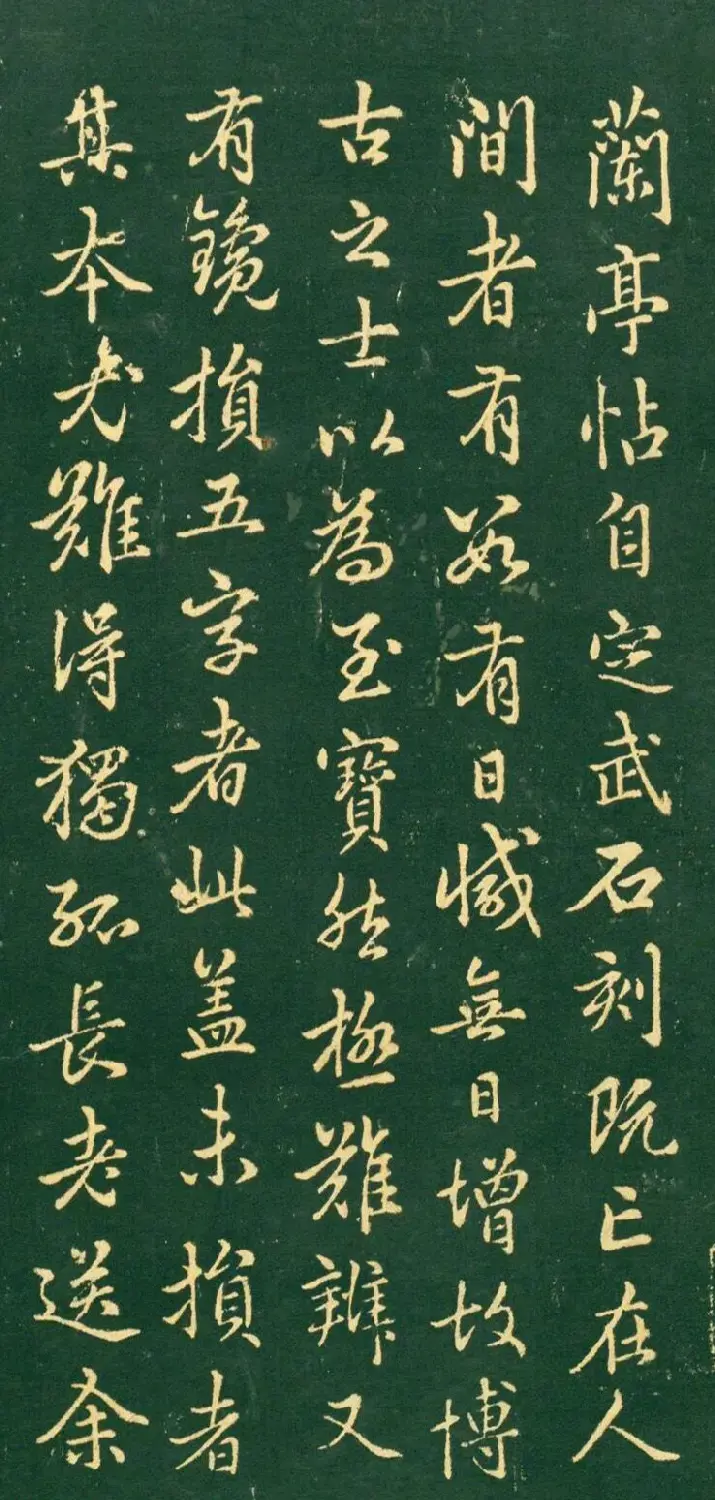 蘭亭帖自定武石刻既亡在人
間者有數有日減無日增故博
古之士以為至寶然極難辨又
有鑱損五字者此盖未損者
其本尤難得獨孤長老送余